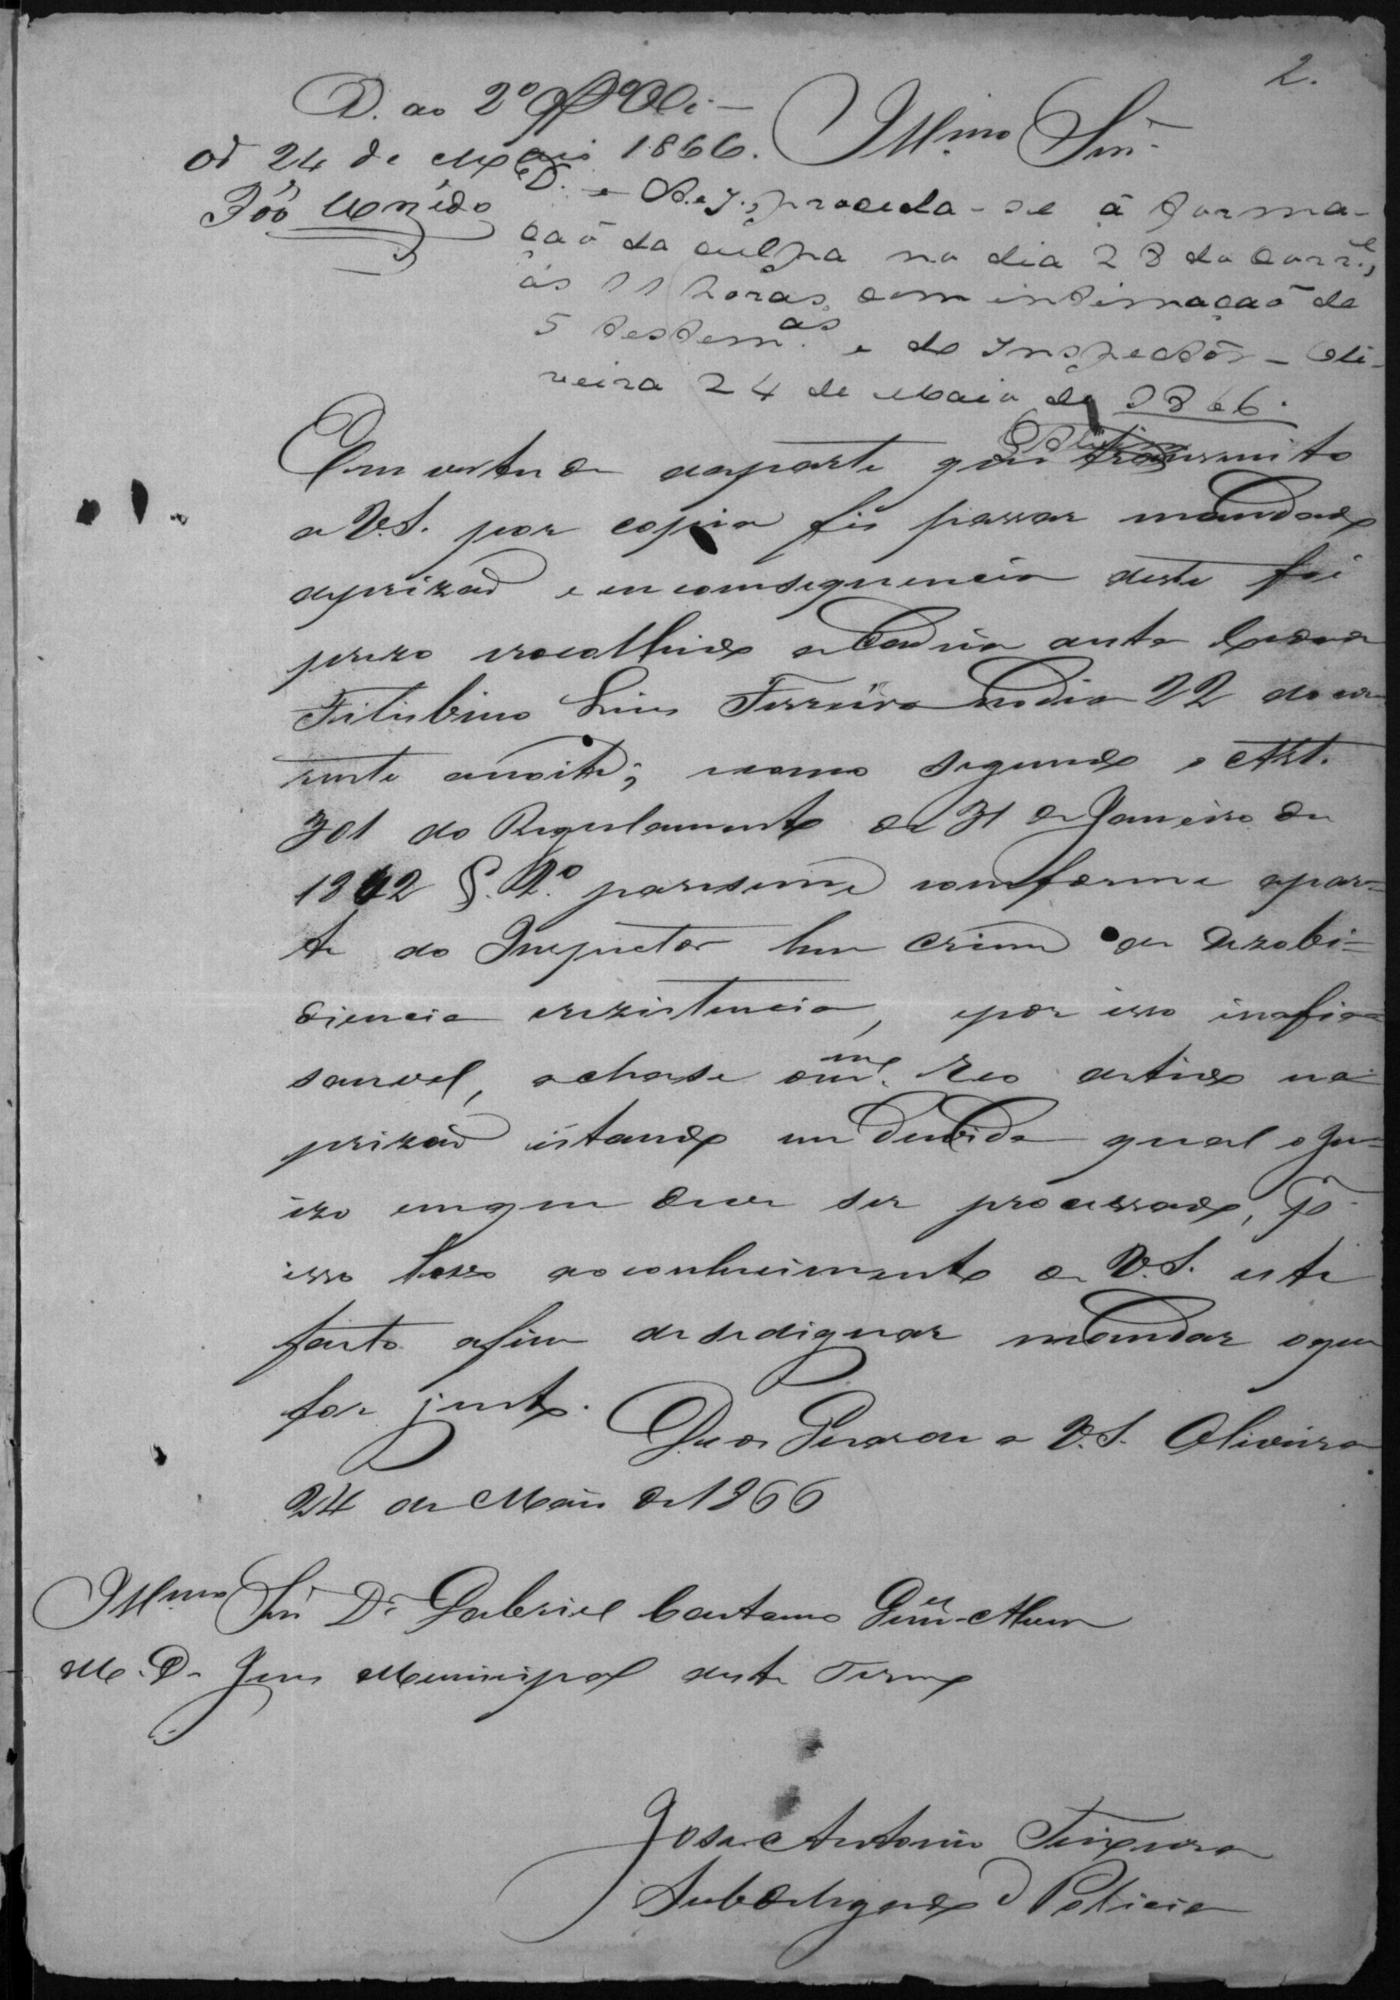 2.
D. ao 2º
Od 24 de Maio 1866.
Illmo Snr.
D. e A. e J., proceda-se á forma-
çaõ da culpa no dia 28 do Corr.e,
ás 11 horas, com intimaçaõ de
5 testem.as e do Inspector - Oli-
veira 24 de Maio de 1866.
Em vertude daparte que transmito
a V.S. por copia fis passar mandado
deprizaõ e em comsequencia deste foi
prezo erecolhido a Cadeia
Filisbino Luis Ferreira nodia 22 docor
rente anoite; como segundo o Art.
301 do Regulamento de 31 de Janeiro de
1842 §. 2º paresseme comforme apar-
te do Inspector hum crime de Dezobi-
diencia erezistencia, epor isso inafian
savel, achase omme Reo detido na
prizaõ estando em Duvida qual oJu-
izo emque deve ser processado, Pr
isso levo aoconhecimento de V.S. este
facto afim desedignar mandar oque
for justo.
Deos Guarde a V.S. Oliveira
24 de Maio de 1866
Illmo Snr Dr Gabriel Caetano
M. D. Juis Municipal deste Termo
Jose Antonio Teixeira
Subdelegado Policia